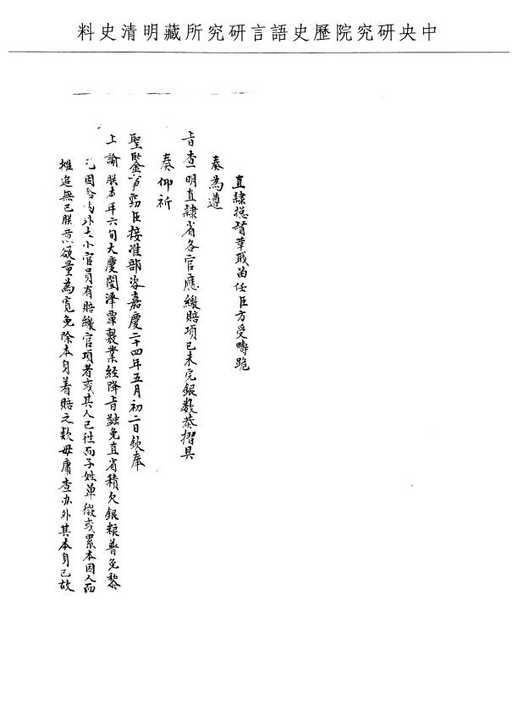 中央研究院歷史語言研究所藏明清史料
直隸總督革職留任臣方受疇跪
奏為遵
旨查明直隸省各官應繳賠項已未完銀數恭摺具
奏仰祈
聖鑒事竊臣接准部咨嘉慶二十四年五月初二日欽奉
上諭朕本年六旬大慶闓澤覃敷業經降旨豁免直省積欠銀糧普免黎
元因思內外大小官員有賠繳官項者或其人已往而子姓單微或累本因人而
攤追無已朕意欲量為寬免除本身著賠之款毋庸查办外其本身已故